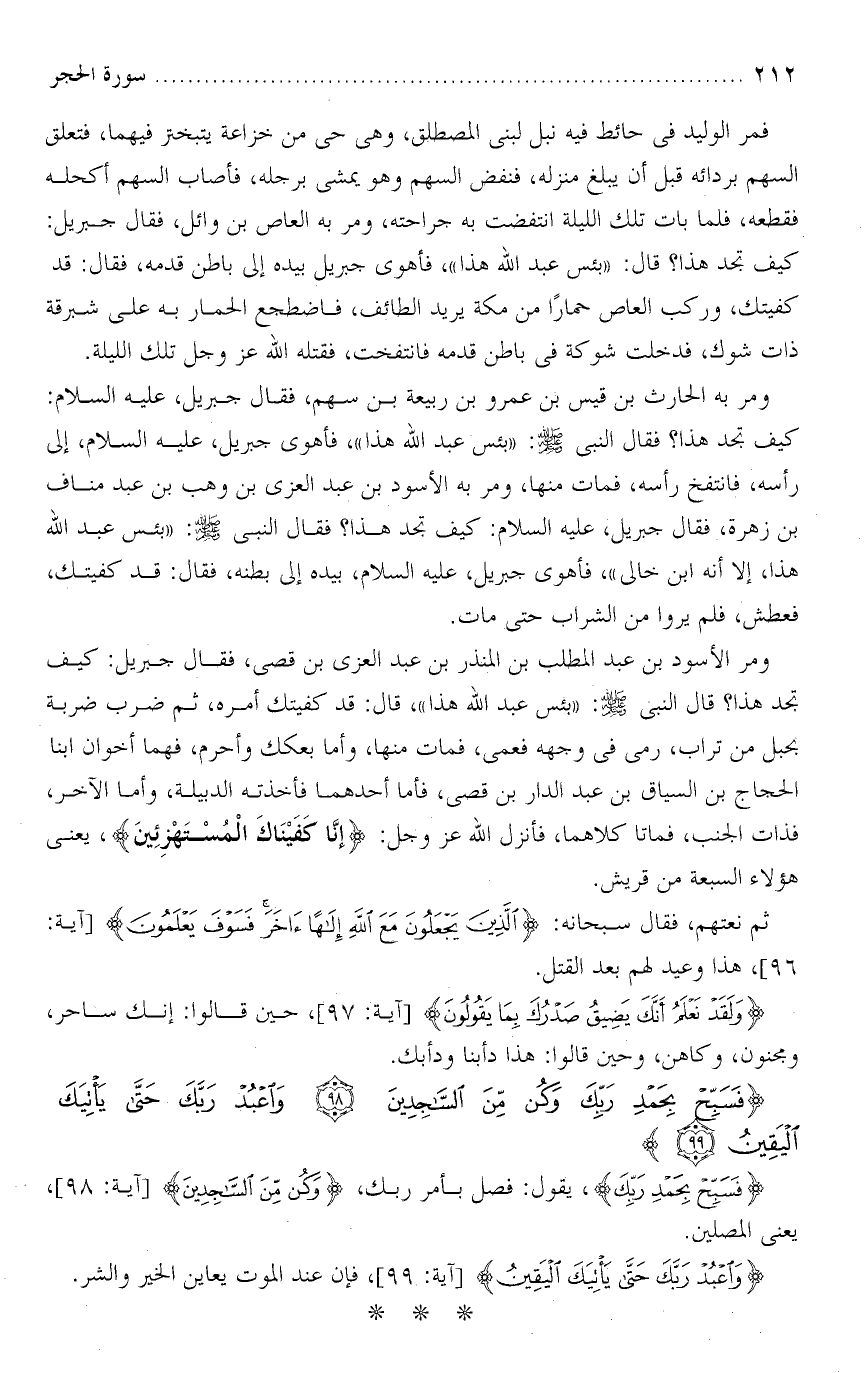 ٢١٢ ........................................................................ سورة الحجر
فمر الوليد فى حائط فيه نبل لبنى المصطلق، وهى حى من خزاعة يتبختر فيهما، فتعلق
السهم بردائه قبل أن يبلغ منزله، فنفض السهم وهو يمشى برجله، فأصاب السهم أكحله
فقطعه، فلما بات تلك الليلة انتفضت به جراحته، ومر به العاص بن وائل، فقال جبريل:
كيف تجد هذا؟ قال: «بئس عبد الله هذا»، فأهوى جبريل بيده إلى باطن قدمه، فقال: قد
كفيتك، وركب العاص حمارًا من مكة يريد الطائف، فاضطجع الحمار به على شبرقة
ذات شوك، فدخلت شوكة فى باطن قدمه فانتفخت، فقتله الله عز وجل تلك الليلة.
ومر به الحارث بن قيس بن عمرو بن ربيعة بن سهم، فقال جبريل، عليه السلام:
كيف تجد هذا؟ فقال النبى ﷺ: «بئس عبد الله هذا»، فأهوى جبريل، عليه السلام، إلى
رأسه، فانتفخ رأسه، فمات منها، ومر به الأسود بن عبد العزى بن وهب بن عبد مناف
بن زهرة، فقال جبريل، عليه السلام: كيف تجد هذا؟ فقال النبى ﷺ: «بئس عبد الله
هذا، إلا أنه ابن خالى»، فأهوى جبريل، عليه السلام، بيده إلى بطنه، فقال: قد كفيتك،
فعطش، فلم يروا من الشراب حتى مات.
ومر الأسود بن عبد المطلب بن المنذر بن عبد العزى بن قصى، فقال جبريل: كيف
تجد هذا؟ قال النبى ﷺ: «بئس عبد الله هذا»، قال: قد كفيتك أمره، ثم ضرب ضربة
بحبل من تراب، رمى فى وجهه فعمى، فمات منها، وأما بعكك وأحرم، فهما أخوان ابنا
الحجاج بن السياق بن عبد الدار بن قصى، فأما أحدهما فأخذته الدبيلة، وأما الآخر،
فذات الجنب، فماتا كلاهما، فأنزل الله عز وجل: ﴿إِنَّا كَفَيْنَاكَ الْمُسْتَهْزِئِينَ﴾، يعنى
هؤلاء السبعة من قريش.
ثم نعتهم، فقال سبحانه: ﴿ٱلَّذِينَ يَجْعَلُونَ مَعَ ٱللَّهِ إِلَـٰهًا ءَاخَرَ ۚ فَسَوْفَ يَعْلَمُونَ﴾ [آية:
٩٦]، هذا وعيد لهم بعد القتل.
﴿وَلَقَدْ نَعْلَمُ أَنَّكَ يَضِيقُ صَدْرُكَ بِمَا يَقُولُونَ﴾ [آية: ٩٧]، حين قالوا: إنك ساحر،
ومجنون، وكاهن، وحين قالوا: هذا دأبنا ودأبك.
﴿فَسَبِّحْ بِحَمْدِ رَبِّكَ وَكُن مِّنَ ٱلسَّـٰجِدِينَ ٩٨ وَٱعْبُدْ رَبَّكَ حَتَّىٰ يَأْتِيَكَ
ٱلْيَقِينُ ٩٩﴾
﴿فَسَبِّحْ بِحَمْدِ رَبِّكَ﴾، يقول: فصل بأمر ربك، ﴿وَكُن مِّنَ ٱلسَّـٰجِدِينَ﴾ [آية: ٩٨]،
يعنى المصلين.
﴿وَٱعْبُدْ رَبَّكَ حَتَّىٰ يَأْتِيَكَ ٱلْيَقِينُ﴾ [آية: ٩٩]، فإن عند الموت يعاين الخير والشر.
* * *